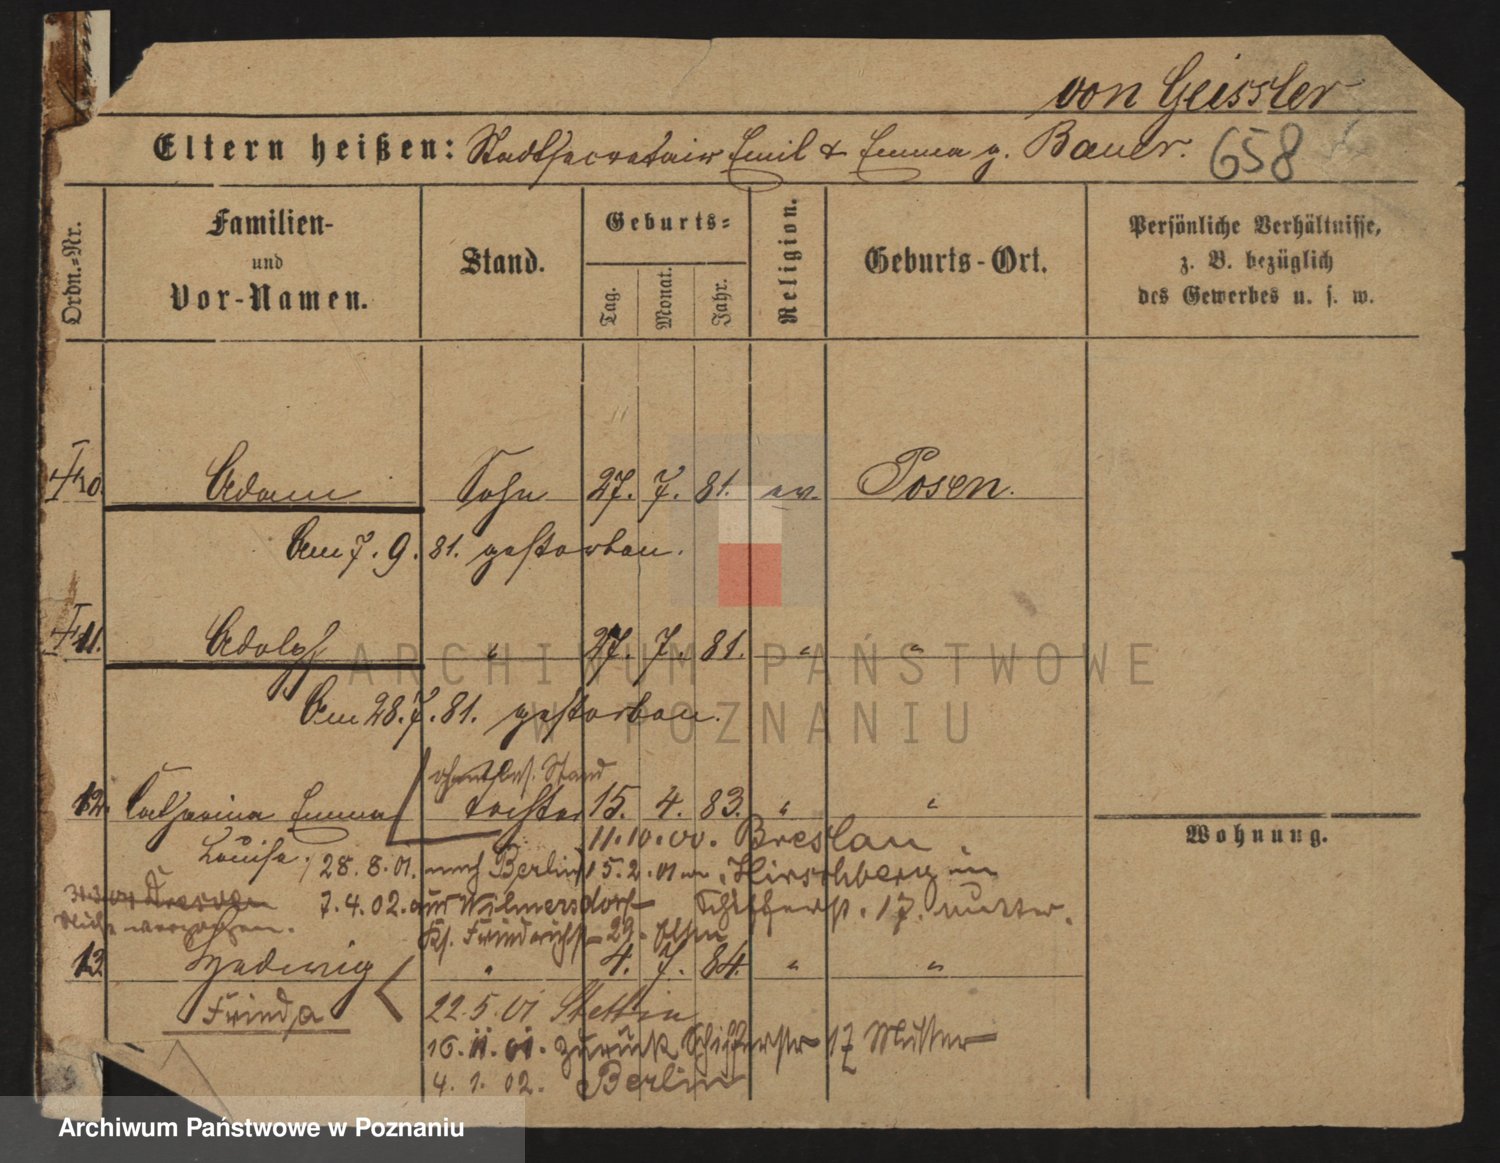 von Geissler
Eltern heißen: Stadtsecretair Emil & Emma g. Bauer. 658
Ordn.-Nr.
Familien-
und
Vor-Namen.
Stand.
Geburts-
Tag.
Monat.
Jahr.
Religion.
Geburts-Ort.
Persönliche Verhältnisse,
z. B. bezüglich
des Gewerbes u. s. w.
10. Adam Sohn 27. 7. 81. ev. Posen.
Am 7. 9. 81. gestorben.
11. Adolph " 27. 7. 81. " "
Am 28. 7. 81. gestorben.
Stand
12. Catharina Emma Tochter 15. 4. 83. " "
Wohnung.
11. 10. 00. Breslau
Louise 28. 8. 01. nach Berlin 15. 2. 01 Hirschberg
Dresden 7. 4. 02. aus Wilmersdorf Schifferst. 17. Mutter.
verzogen. Friedrichst 29.
13. Hedwig " 4. 7. 84. " "
Frieda 22. 5. 01 Stettin
16. 11. 01. zurück Schifferstr 17 Mutter
4. 1. 02. Berlin
ARCHIWUM PAŃSTWOWE
W POZNANIU
Archiwum Państwowe w Poznaniu